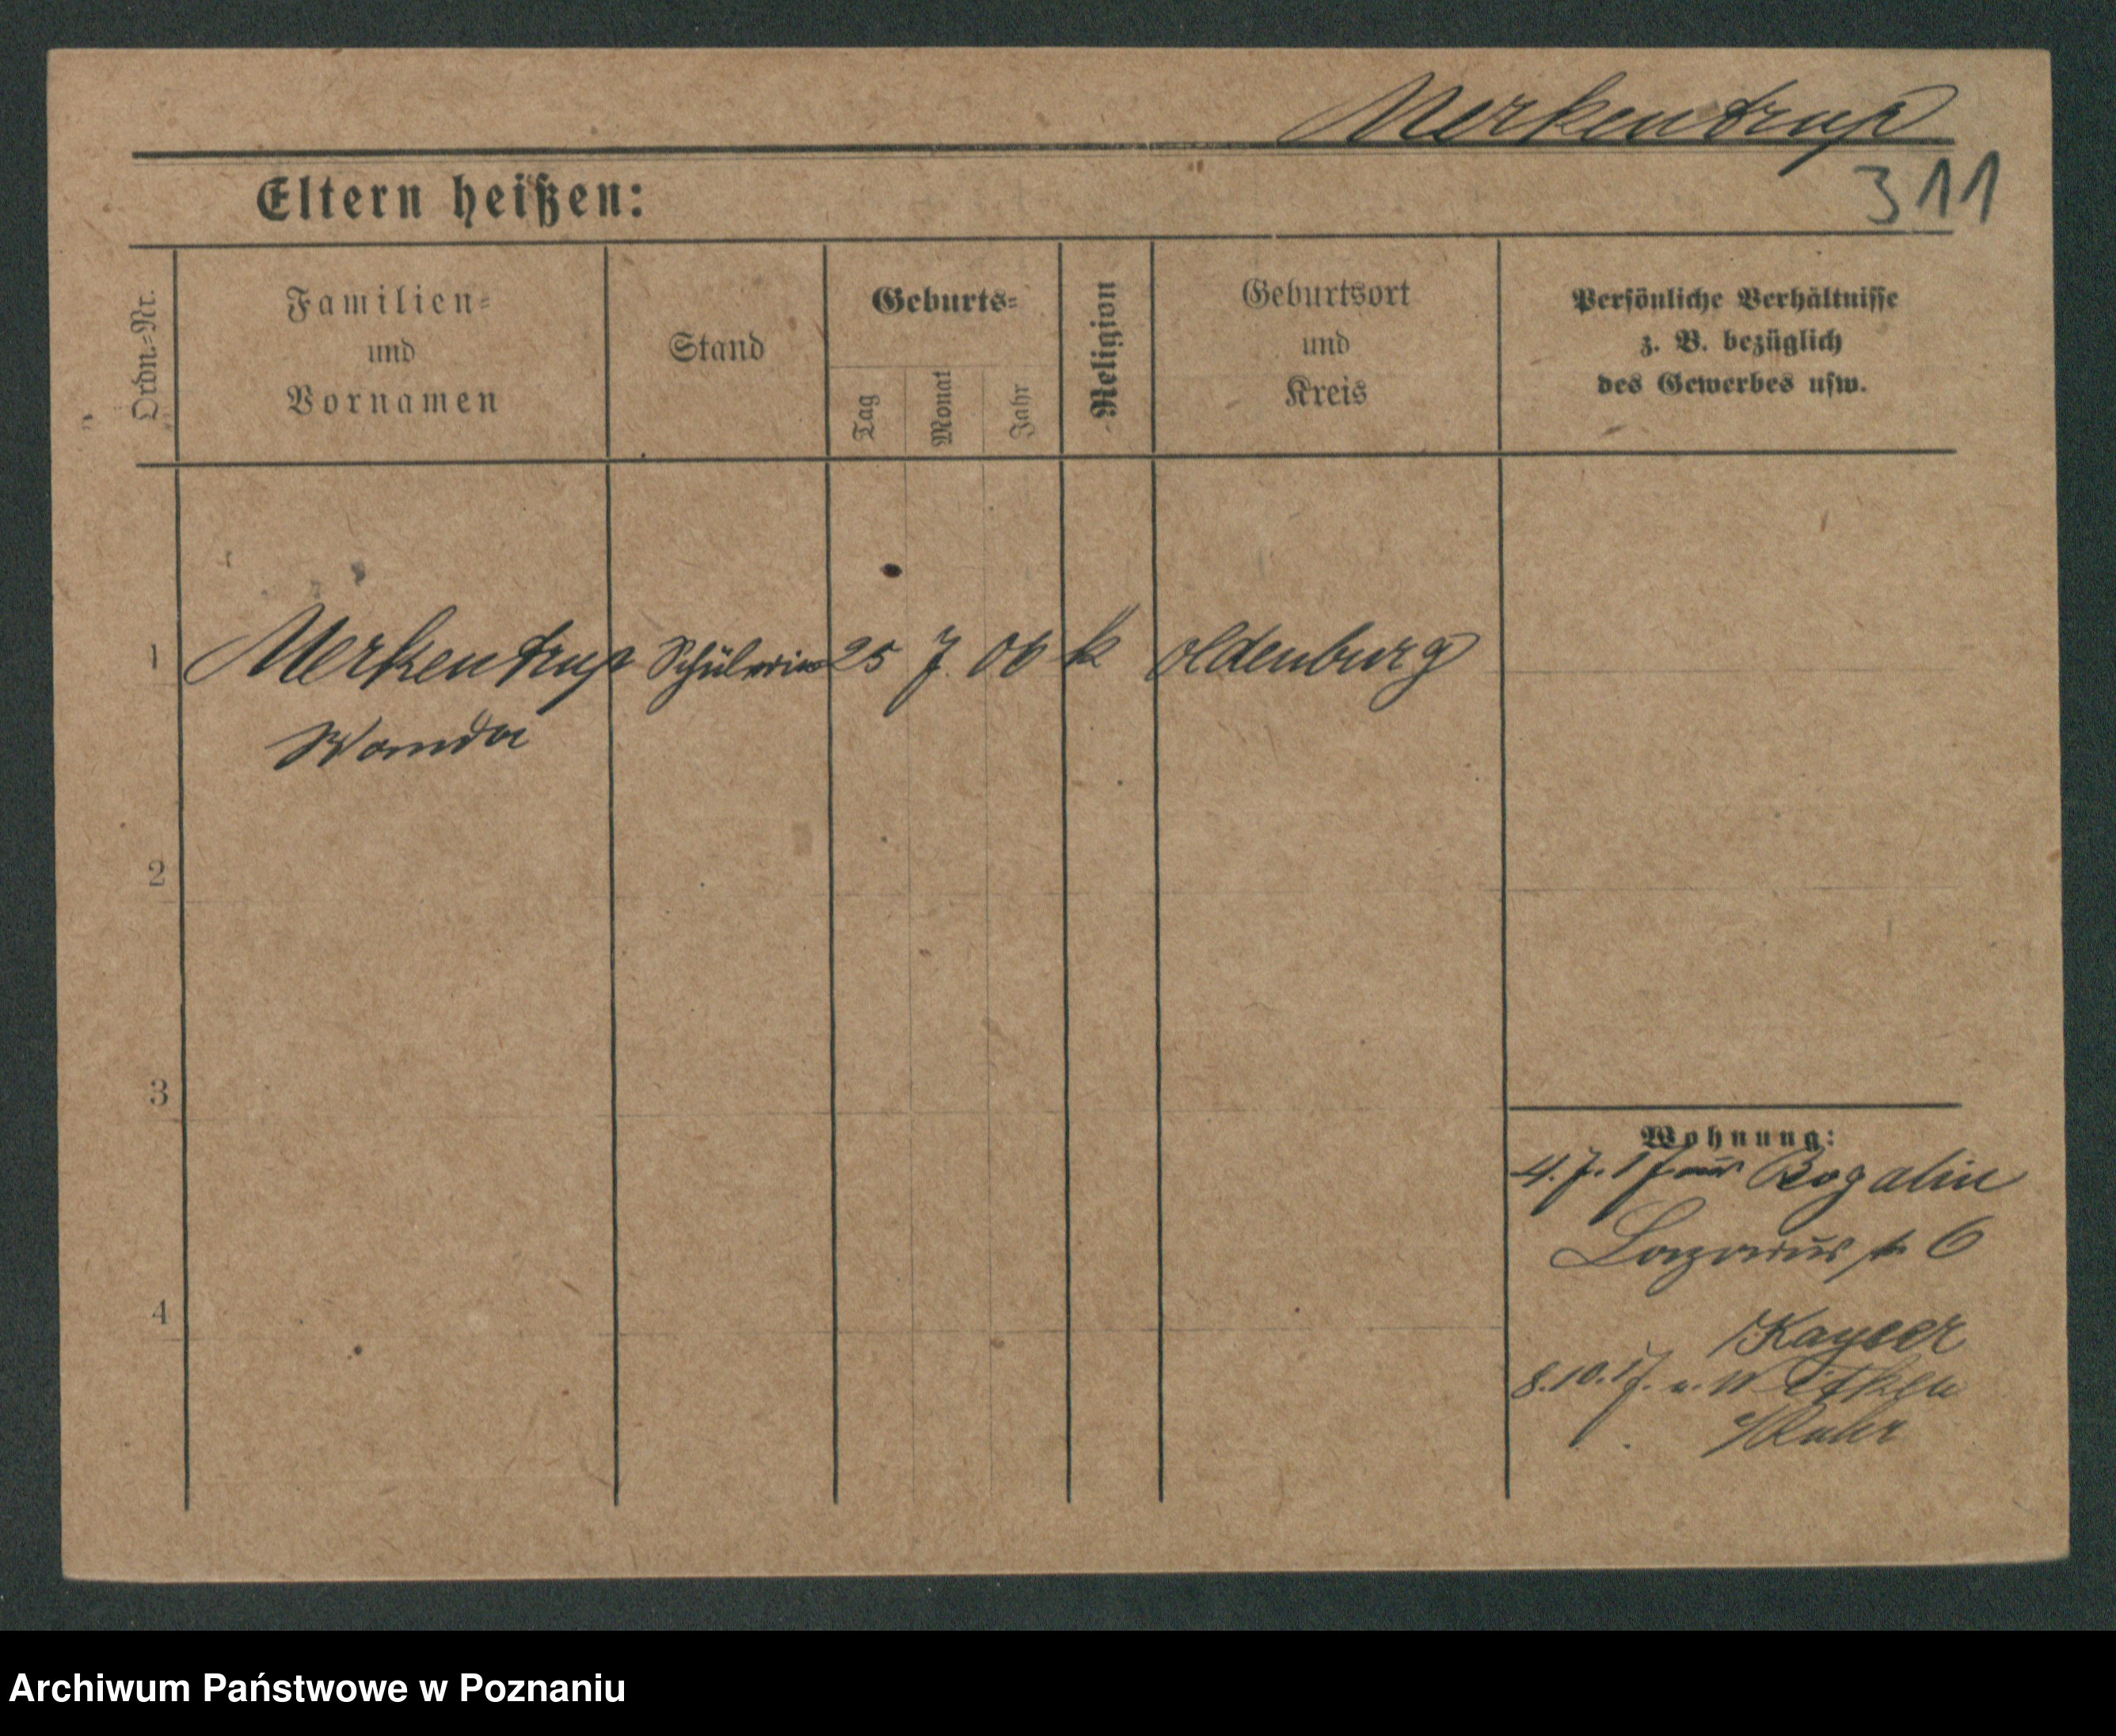 Merkentrup
311
Eltern heißen:
Ordn.-Nr.
Familien-
und
Vornamen
Stand
Geburts-
Tag
Monat
Jahr
Religion
Geburtsort
und
Kreis
Persönliche Verhältnisse
z. B. bezüglich
des Gewerbes usw.
1 Merkentrup Schülerin 25 7. 06 k Oldenburg
Wanda
2
3
4
Wohnung:
4.7.17 aus Rogalin
Lazarusstr 6
Kayser
8.10.17. n. Witten
/Ruhr
Archiwum Państwowe w Poznaniu